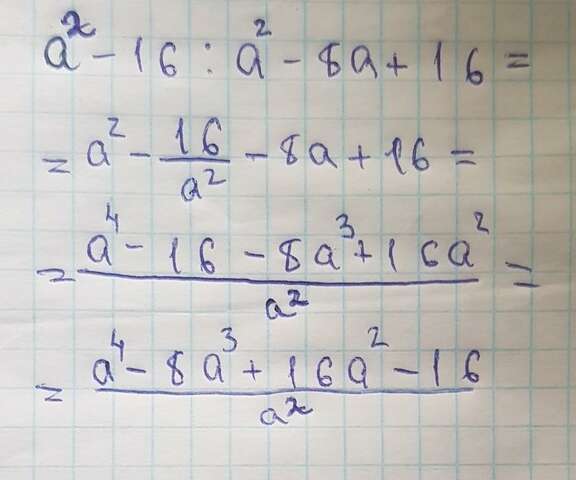 a² - 16 : a² - 8a + 16 =
= a² - 16/a² - 8a + 16 =
= (a⁴ - 16 - 8a³ + 16a²)/a² =
= (a⁴ - 8a³ + 16a² - 16)/a²